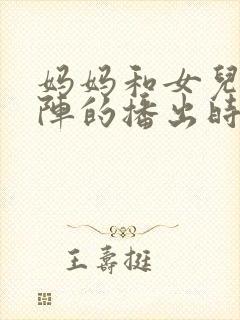 妈妈和女兒
陣的播出時
王壽挺